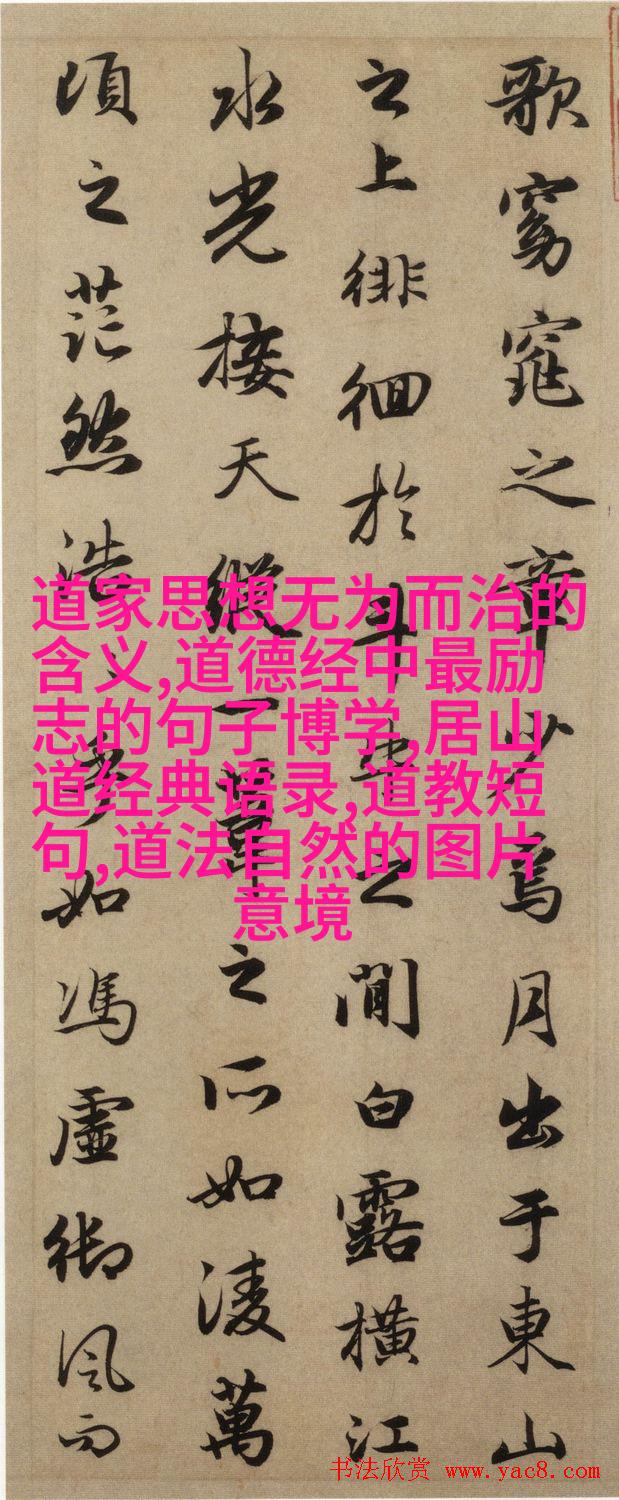 歌窈窕之章少焉月出于東山
之上徘徊於斗牛之間白露橫江
水光接天縱一葦之所如淩萬
頃之茫然浩〻乎如馮虛御風而
道家思想无为而治的
含义,道德经中最励
志的句子博学,居山
道经典语录,道教短
句,道法自然的图片
意境
书法欣赏 www.yac8.com